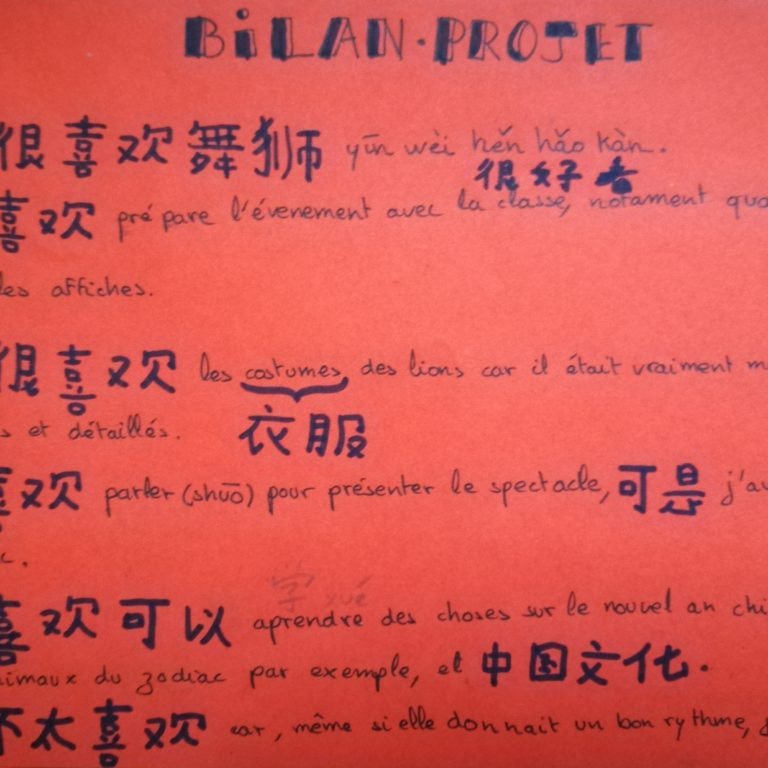 BILAN·PROJET
很喜欢舞狮 yīn wèi hěn hǎo kàn.
很好看
喜欢 prépare l'évenement avec la classe, notament
les affiches.
很喜欢 les costumes des lions car il était vraiment
et détaillés. 衣服
喜欢 parler (shuō) pour présenter le spectacle, 可是
喜欢可以 aprendre des choses sur le nouvel an
学 xué
du zodiac par exemple, et 中国文化.
不太喜欢 car, même si elle donnait un bon rythme,